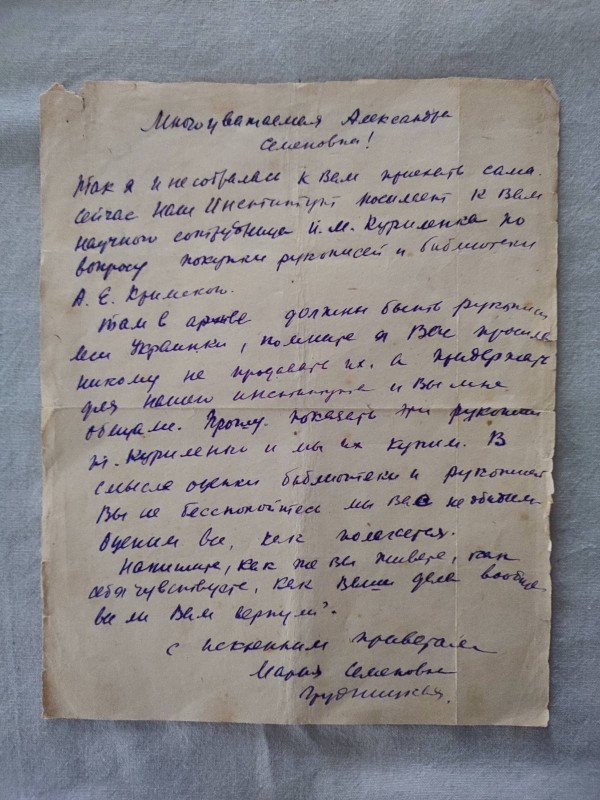 Многоуважаемая Александра
Семеновна!
Так я и не собралась к Вам приехать сама.
Сейчас наш Институт посылает к Вам
научного сотрудника И. М. Куриленка по
вопросу покупки рукописей и библиотеки
А. Е. Крымского.
Там в архиве должны быть рукописи
Леси Украинки, помните я Вас просила
никому не продавать их, а придержать
для нашего института и Вы мне
обещали. Прошу показать эти рукописи
т. Куриленко и мы их купим. В
смысле оценки библиотеки и рукописей
Вы не бесспокойтесь мы Вас не обидим
оценим все, как полагается.
Напишите, как же Вы живете, как
себя чувствуете, как Ваши дела вообще
все ли Вам вернули?
С искренним приветом
Мария Семеновна
Грудницкая.